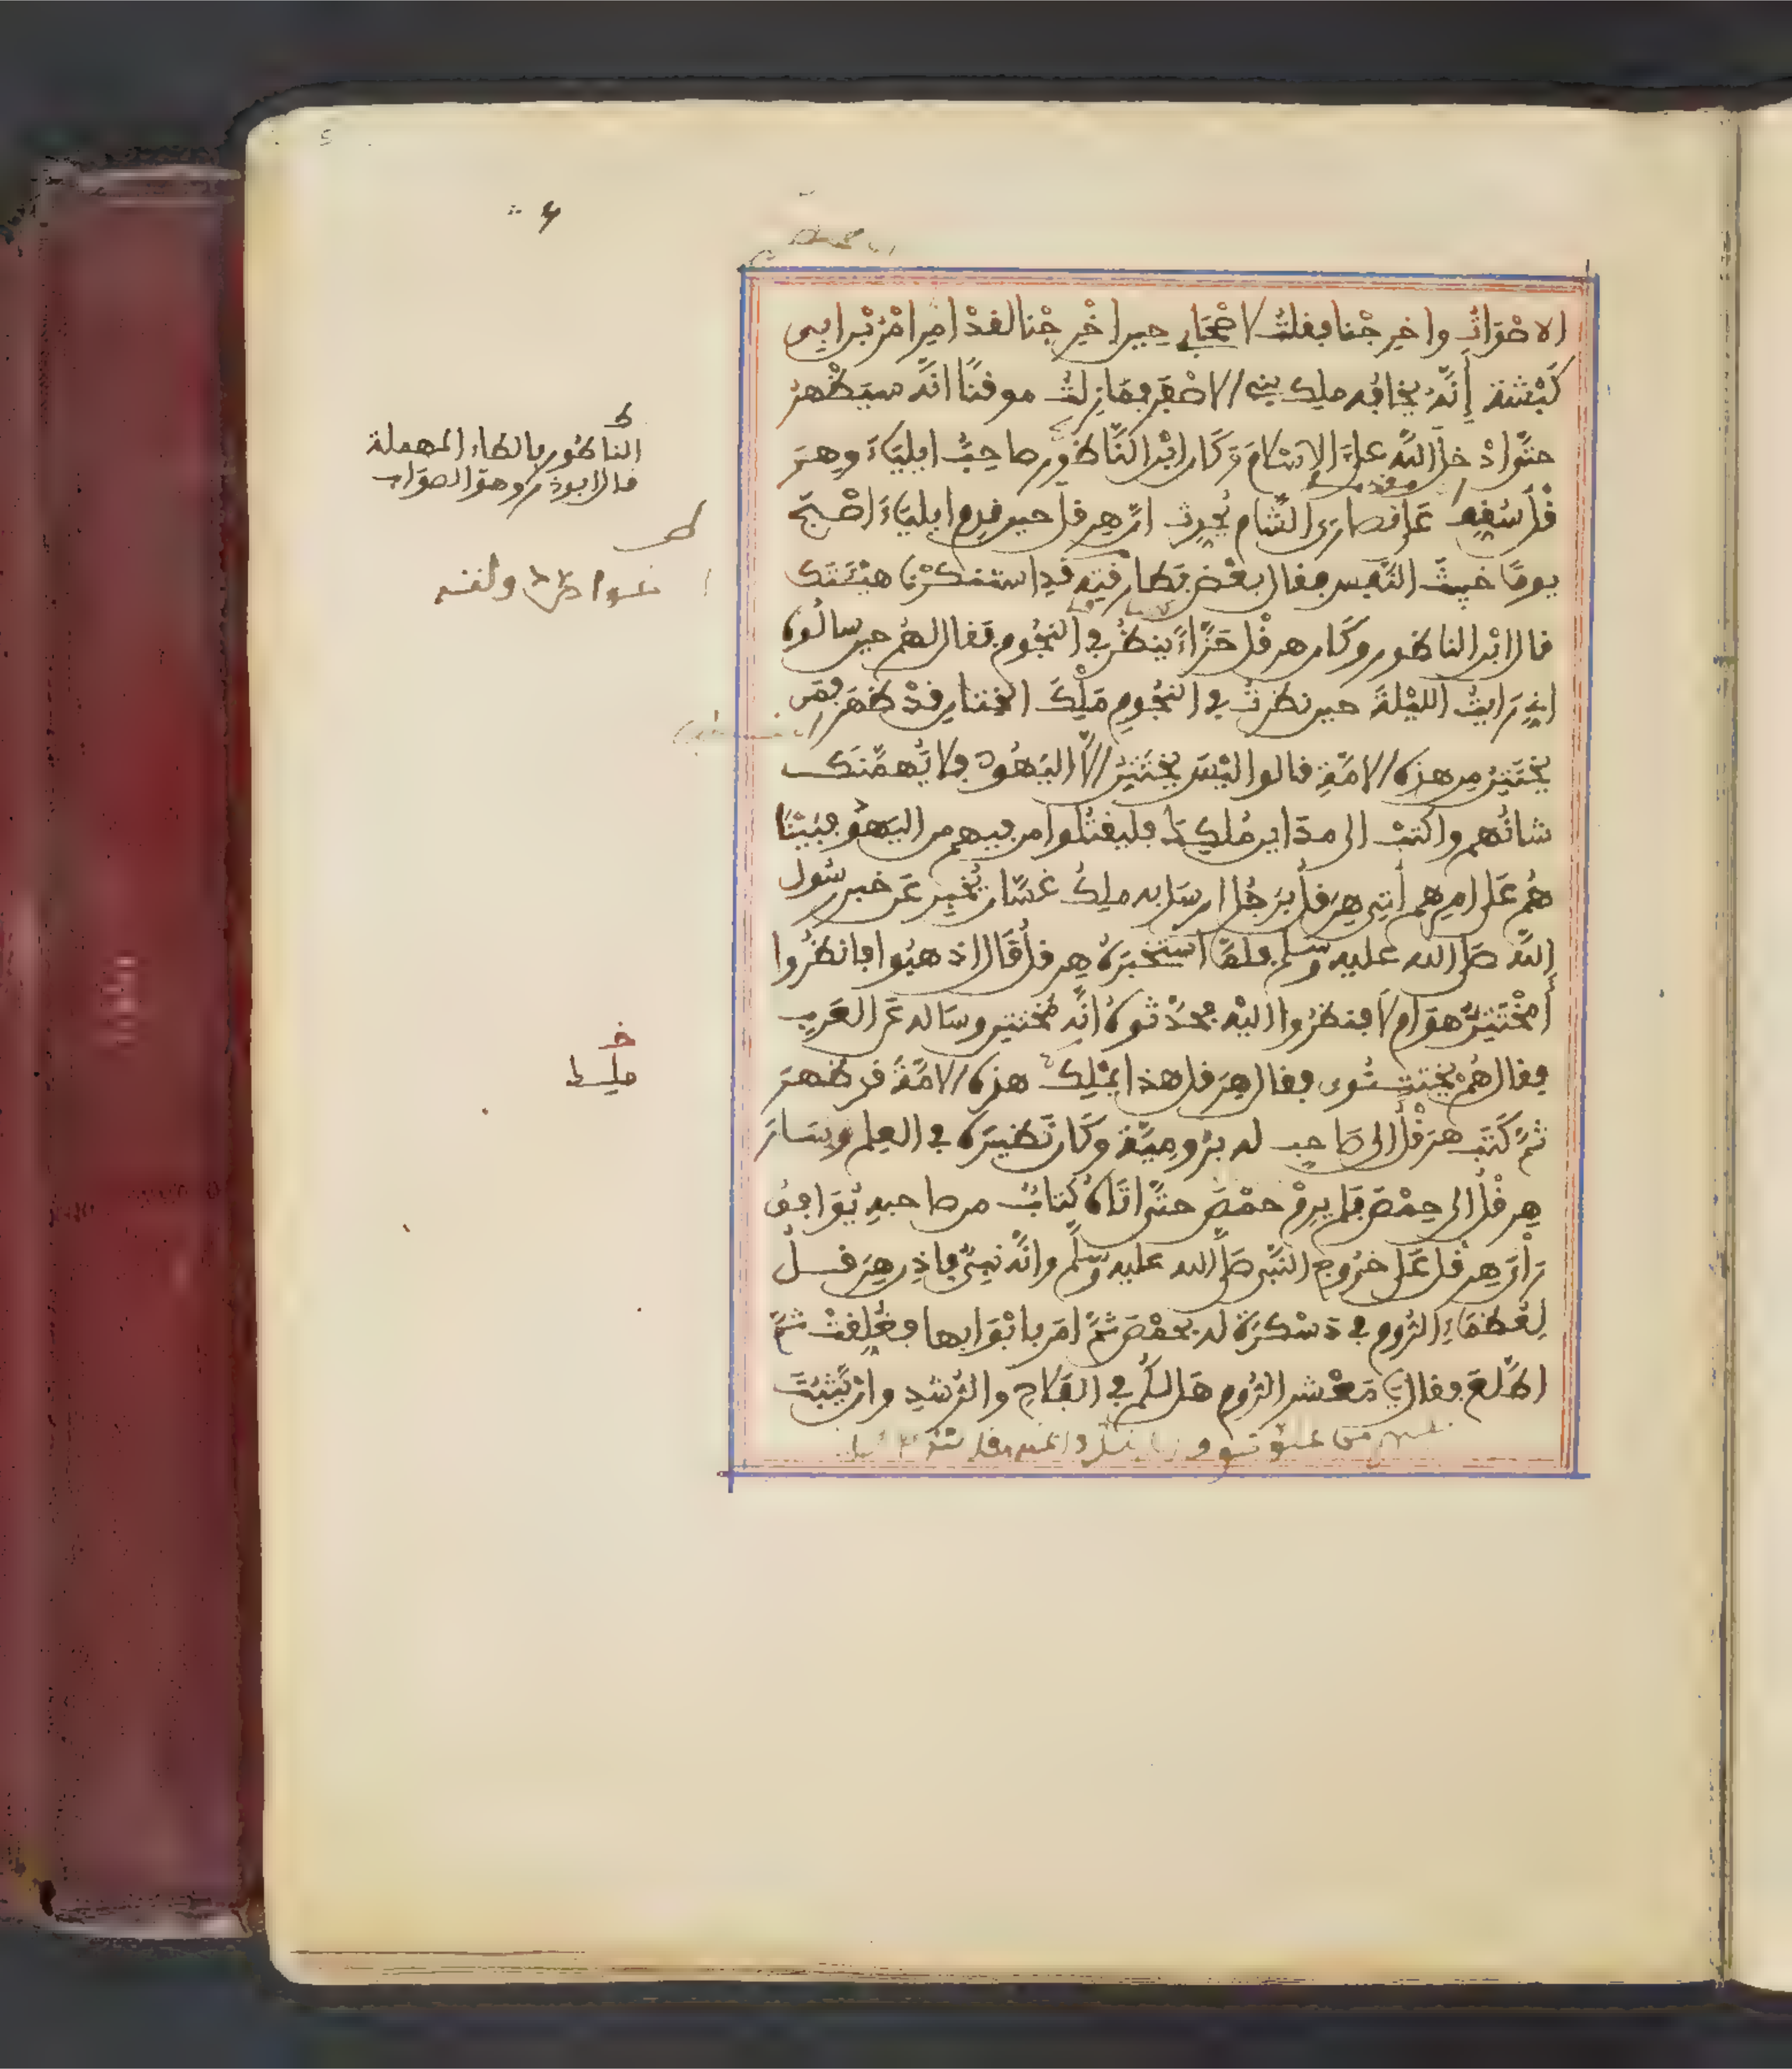 الاصْوَاتُ واخرِجْنا فقلتُ لاصْحَابِي حين اخْرِجْنا لقدْ امِرَ امْرُ ابْن ابِي
كَبْشَةَ إِنَّهُ يخافُه ملِك بنِي الاصْفَرِ فمَا زِلتُ موقنًا انَّه سيَظْهرُ
حتَّى ادْخلَ اللَّه علَيَّ الاسْلامَ وَكَان ابْن النَّاطُور صاحِبُ ايلِيَاءَ وهِرَ
قْلَ سُقِفَ عَلى نصارَى الشَّام يُحدِث انَّ هِرقل حين قدِم ايلِيَاءَ اصْبحَ
يومًا خبِيثَ النَّفس فقال بعْض بَطارقتِه قدِ استنكرْنا هيْئتَك
قال ابْن الناطور وكَان هرقْل حَزَّاءً ينظُر في النجُوم فقال لهُم حين سالُوه
انِي رَايتُ الليْلةَ حين نظرتُ في النجُومِ مَلِكَ الختان قدْ ظهَرَ فمَن
يخْتَتِنُ مِن هذِه الامَّةِ قالوا ليْسَ يخْتَتِنُ الَّا اليَهُودُ فلا يُهمَّنك
شانُهم واكتبْ الى مدَاين مُلكِكَ فليقتُلوا من فيهم من اليَهُودِ فبَيْنَا
هُم عَلى امرِهم أُتِي هِرَقلُ برَجُل ارسَل به ملِكُ غسَّان يُخْبِر عَن خبر رسُول
اللَّه صلى الله عليه وسلم فلمَّا اسْتخبَرَهُ هِرقلُ قَال اذهبُوا فانظُروا
أَمُخْتَتِنٌ هوَ ام لَا فنظرُوا اليْه فحدَّثوهُ انَّه مختتِن وسَاله عَن العَرب
فقال هُمْ يختتنُون فقال هِرَقل هذا مُلكُ هذه الامَّةِ قد ظهرَ
ثمَّ كَتَب هرَقْلُ الى صَاحِب له برُومِيَةَ وكَان نَظيرَهُ في العِلم وسَارَ
هِرقْلُ الى حِمْصَ فلم يرِمْ حمْصَ حتَّى اتَاهُ كتابٌ من صاحبِه يُوَافِقُ
رَأْيَ هِرقْل عَلَى خرُوج النَّبي صلى الله عليه وسلَّم وانَّه نبيٌّ فاذِن هِرَقلُ
لِعُظمَاءِ الرُّوم في دَسْكرَة له بحمْصَ ثمَّ امَر بابْوَابها فغُلِقتْ ثمَّ
اطَّلعَ فقال يَا مَعْشر الرُّومِ هَل لكُم في الفَلاحِ والرُّشدِ وان يَّثبُتَ
ط
الناطُور بالطاء المهملة
قال ابو ذر وهوَ الصوَاب
خ
مَلِك